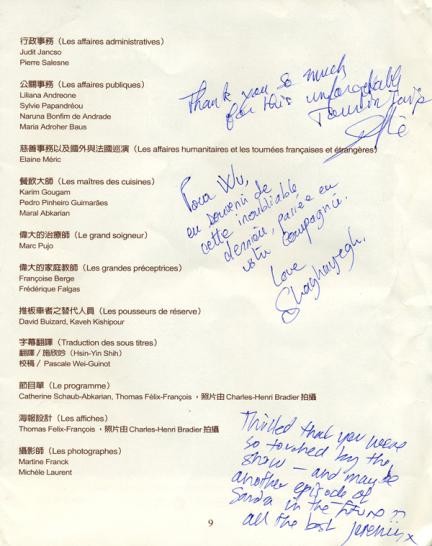 行政事務（Les affaires administratives）
Judit Jancso
Pierre Salesne
公關事務（Les affaires publiques）
Liliana Andreone
Sylvie Papandréou
Naruna Bonfim de Andrade
Maria Adroher Baus
慈善事務以及國外與法國巡演（Les affaires humanitaires et les tournées françaises et étrangères）
Elaine Méric
餐飲大師（Les maîtres des cuisines）
Karim Gougam
Pedro Pinheiro Guimarães
Maral Abkarian
偉大的治療師（Le grand soigneur）
Marc Pujo
偉大的家庭教師（Les grandes préceptrices）
Françoise Berge
Frédérique Falgas
推板車者之替代人員（Les pousseurs de réserve）
David Buizard, Kaveh Kishipour
字幕翻譯（Traduction des sous titres）
翻譯 / 施欣妗（Hsin-Yin Shih）
校稿 / Pascale Wei-Guinot
節目單（Le programme）
Catherine Schaub-Abkarian, Thomas Félix-François，照片由 Charles-Henri Bradier 拍攝
海報設計（Les affiches）
Thomas Felix-François，照片由 Charles-Henri Bradier 拍攝
攝影師（Les photographes）
Martine Franck
Michèle Laurent
9
Thank you so much
for this unforgettable
Pour Wu,
en souvenir de
cette inoubliable
passée en
Love
Shaghayegh.
Thrilled that you were
so touched by the
show – and maybe
another episode of
Sandra in the future ??
all the best Jeremy x